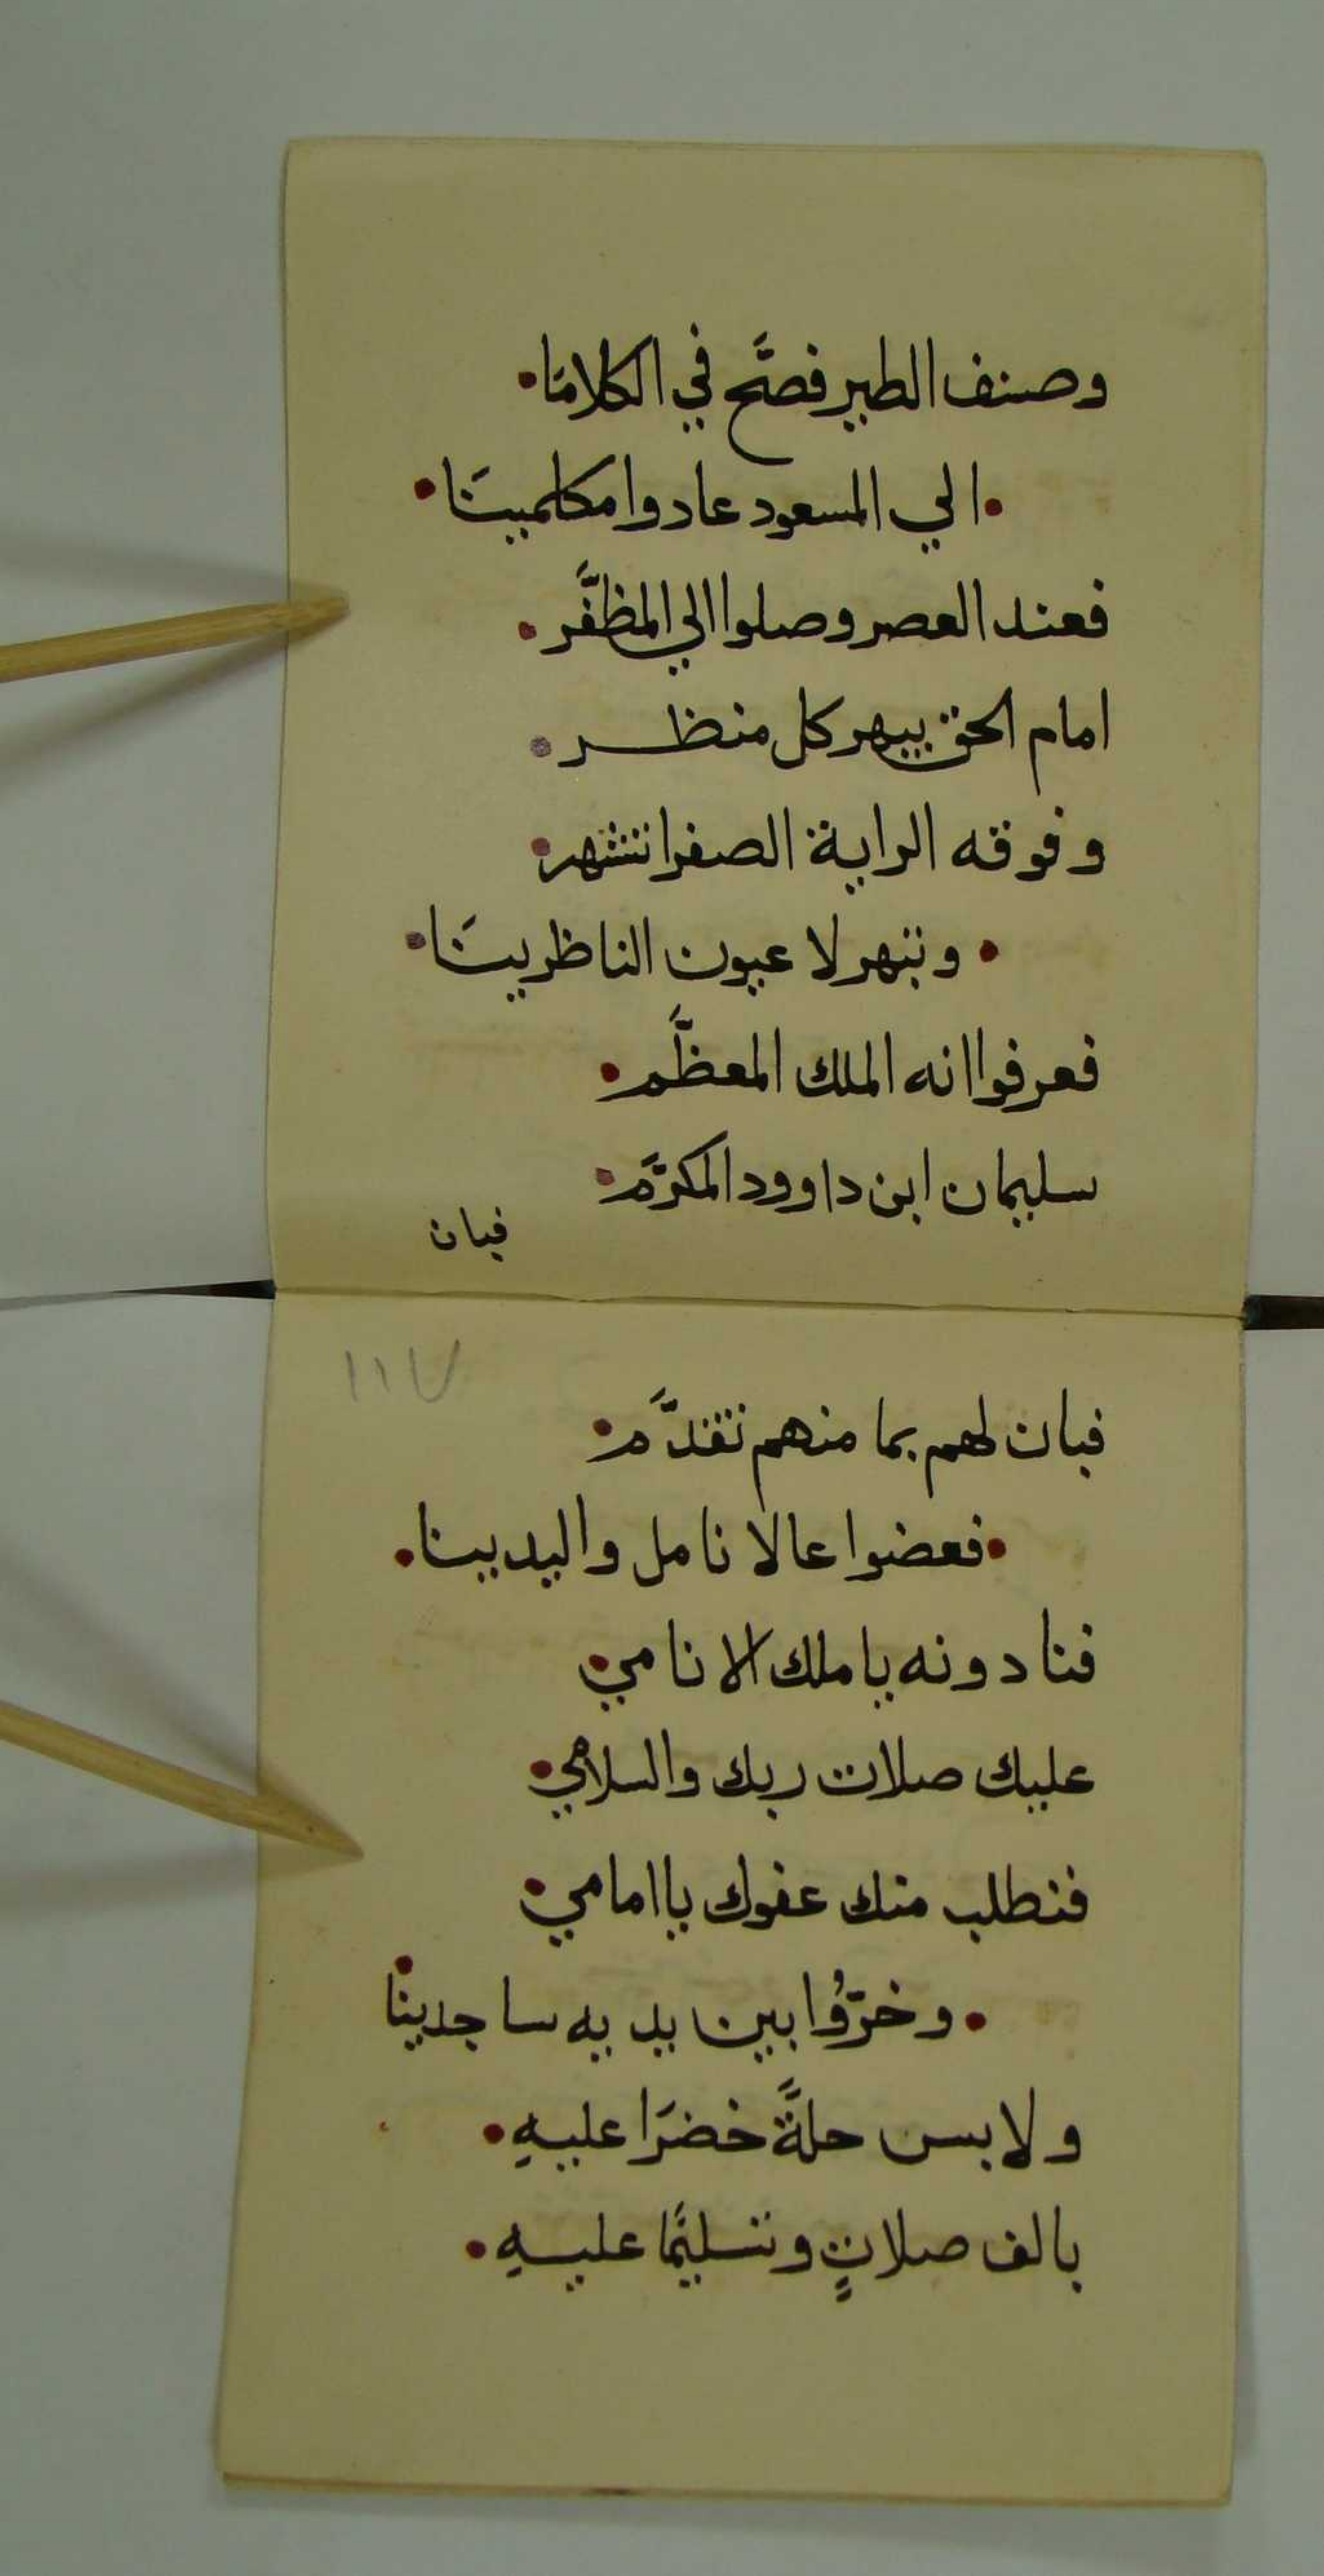 وصنف الطير فصَّح في الكلامَا•
•الي المسعود عادوا مكلميـنَا•
فعند العصر وصلوا الي المظفَّر•
امام الحق يبهر كل منظـر•
وفوقه الراية الصفرا تنشهر•
•وتبهر لا عيون الناظريـنَا•
فعرفوا انه الملك المعظَّم•
سليمان ابن داوود المكرَّم•
فبان
١١٧
فبان لهم بما منهم تقدَّم•
•فعضوا عالانامل واليدينا•
فنادونه ياملك الانامي•
عليك صلات ربك والسلامي•
فنطلب منك عفوك ياامامي•
•وخرّوُا بين يديه ساجدينا•
ولابس حلَّة خضرَا عليهِ•
بالف صلاتٍ وتسليمًا عليـهِ•